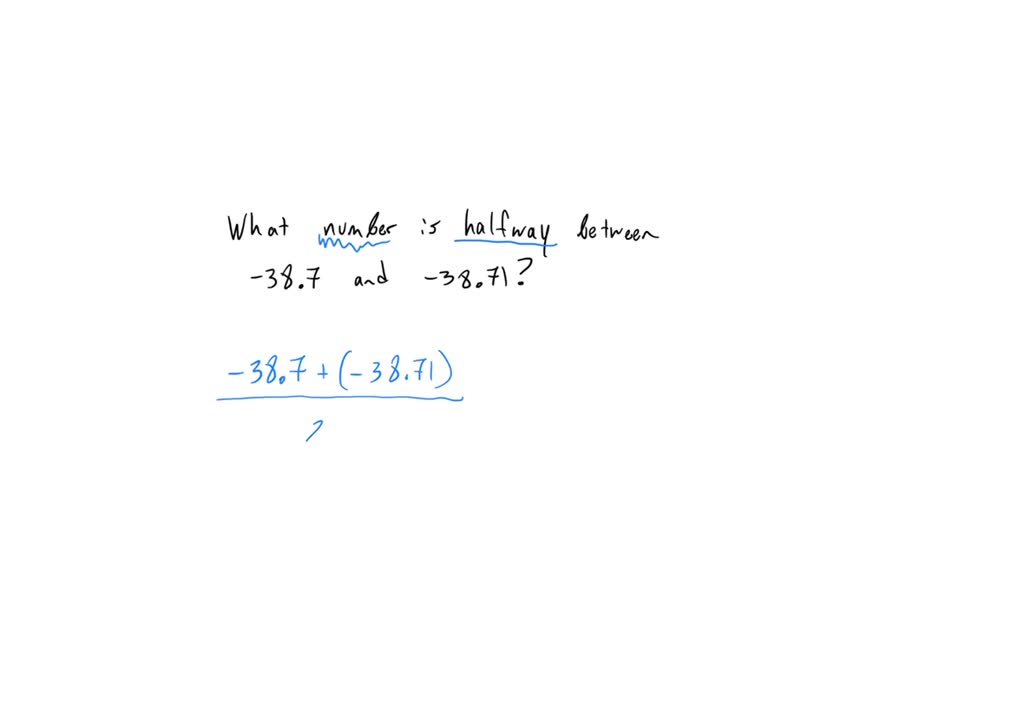 What number is halfway between
-38.7 and -38.71?
-38.7 + (-38.71)
2